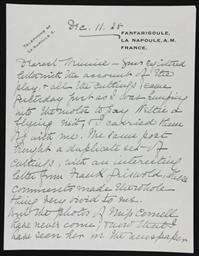 Dec. 11. 28
TELEPHONE 95
LA NAPOULE
FANFARIGOULE,
LA NAPOULE, A.M.
FRANCE.
Dearest Minnie - Your registered
letter with the account of the
play & all the cuttings came
yesterday just as I was jumping
into the motor to pay
flying visit, & I carried them
off with me. The same post
brought a duplicate set of
cuttings, with an interesting
letter from Frank
comments made the whole
thing very vivid to me.
But the photos of Miss Cornell
have never come, & now that I
have seen her in the newspaper